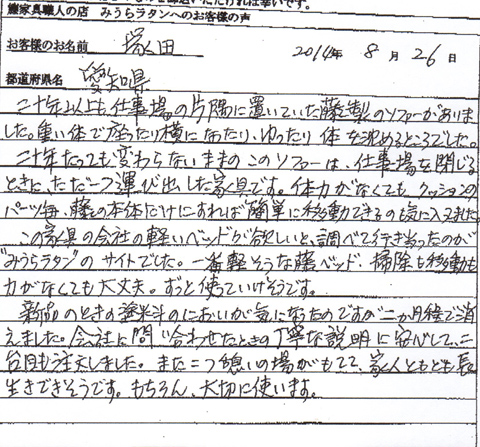 籐家具職人の店 みうらラタンへのお客様の声
お客様のお名前 塚田 2014年 8月 26日
都道府県名 愛知県
二十年以上も、仕事場の片隅に置いていた籐製のソファーがありま
した。重い体で座ったり横になったり、ゆったり体を沈めるところでした。
二十年たっても変わらないままのこのソファーは、仕事場を閉じる
ときに、ただ一つ運び出した家具です。体力がなくても、クッションの
パーツ毎、籐の本体だけにすれば簡単に移動できるのも気に入りました。
この家具の会社の軽いベッドが欲しいと、調べて行き当ったのが
"みうらラタン"のサイトでした。一番軽そうな籐ベッド、掃除も移動も
力がなくても大丈夫。ずっと使っていけそうです。
新品のときの塗料のにおいが気になったのですが二か月程で消
えました。会社に問い合わせたときの丁寧な説明に安心して、二
台目も注文しました。また一つ憩いの場がもてて、家人ともども長
生きできそうです。もちろん、大切に使います。